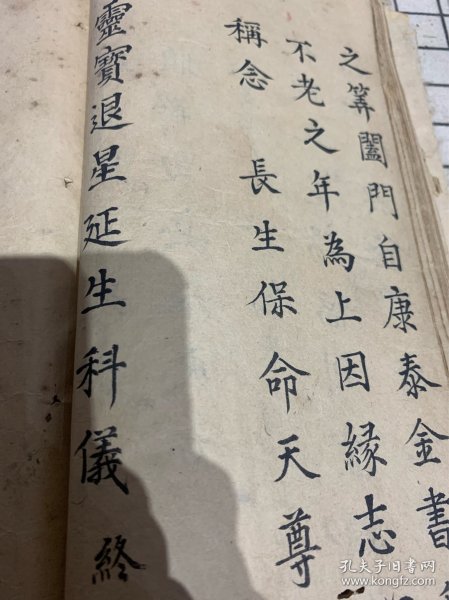 之筭闔門自康泰金書
不老之年為上因緣志
稱念　長生保命天尊
靈寳退星延生科儀　終
孔夫子旧书网
www.kongfz.com